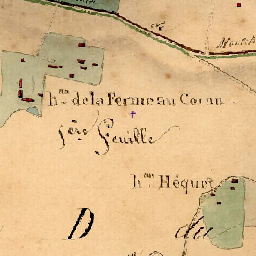 h.au de la Ferme au Coran
1ère Feuille
h.au Héquet
D du